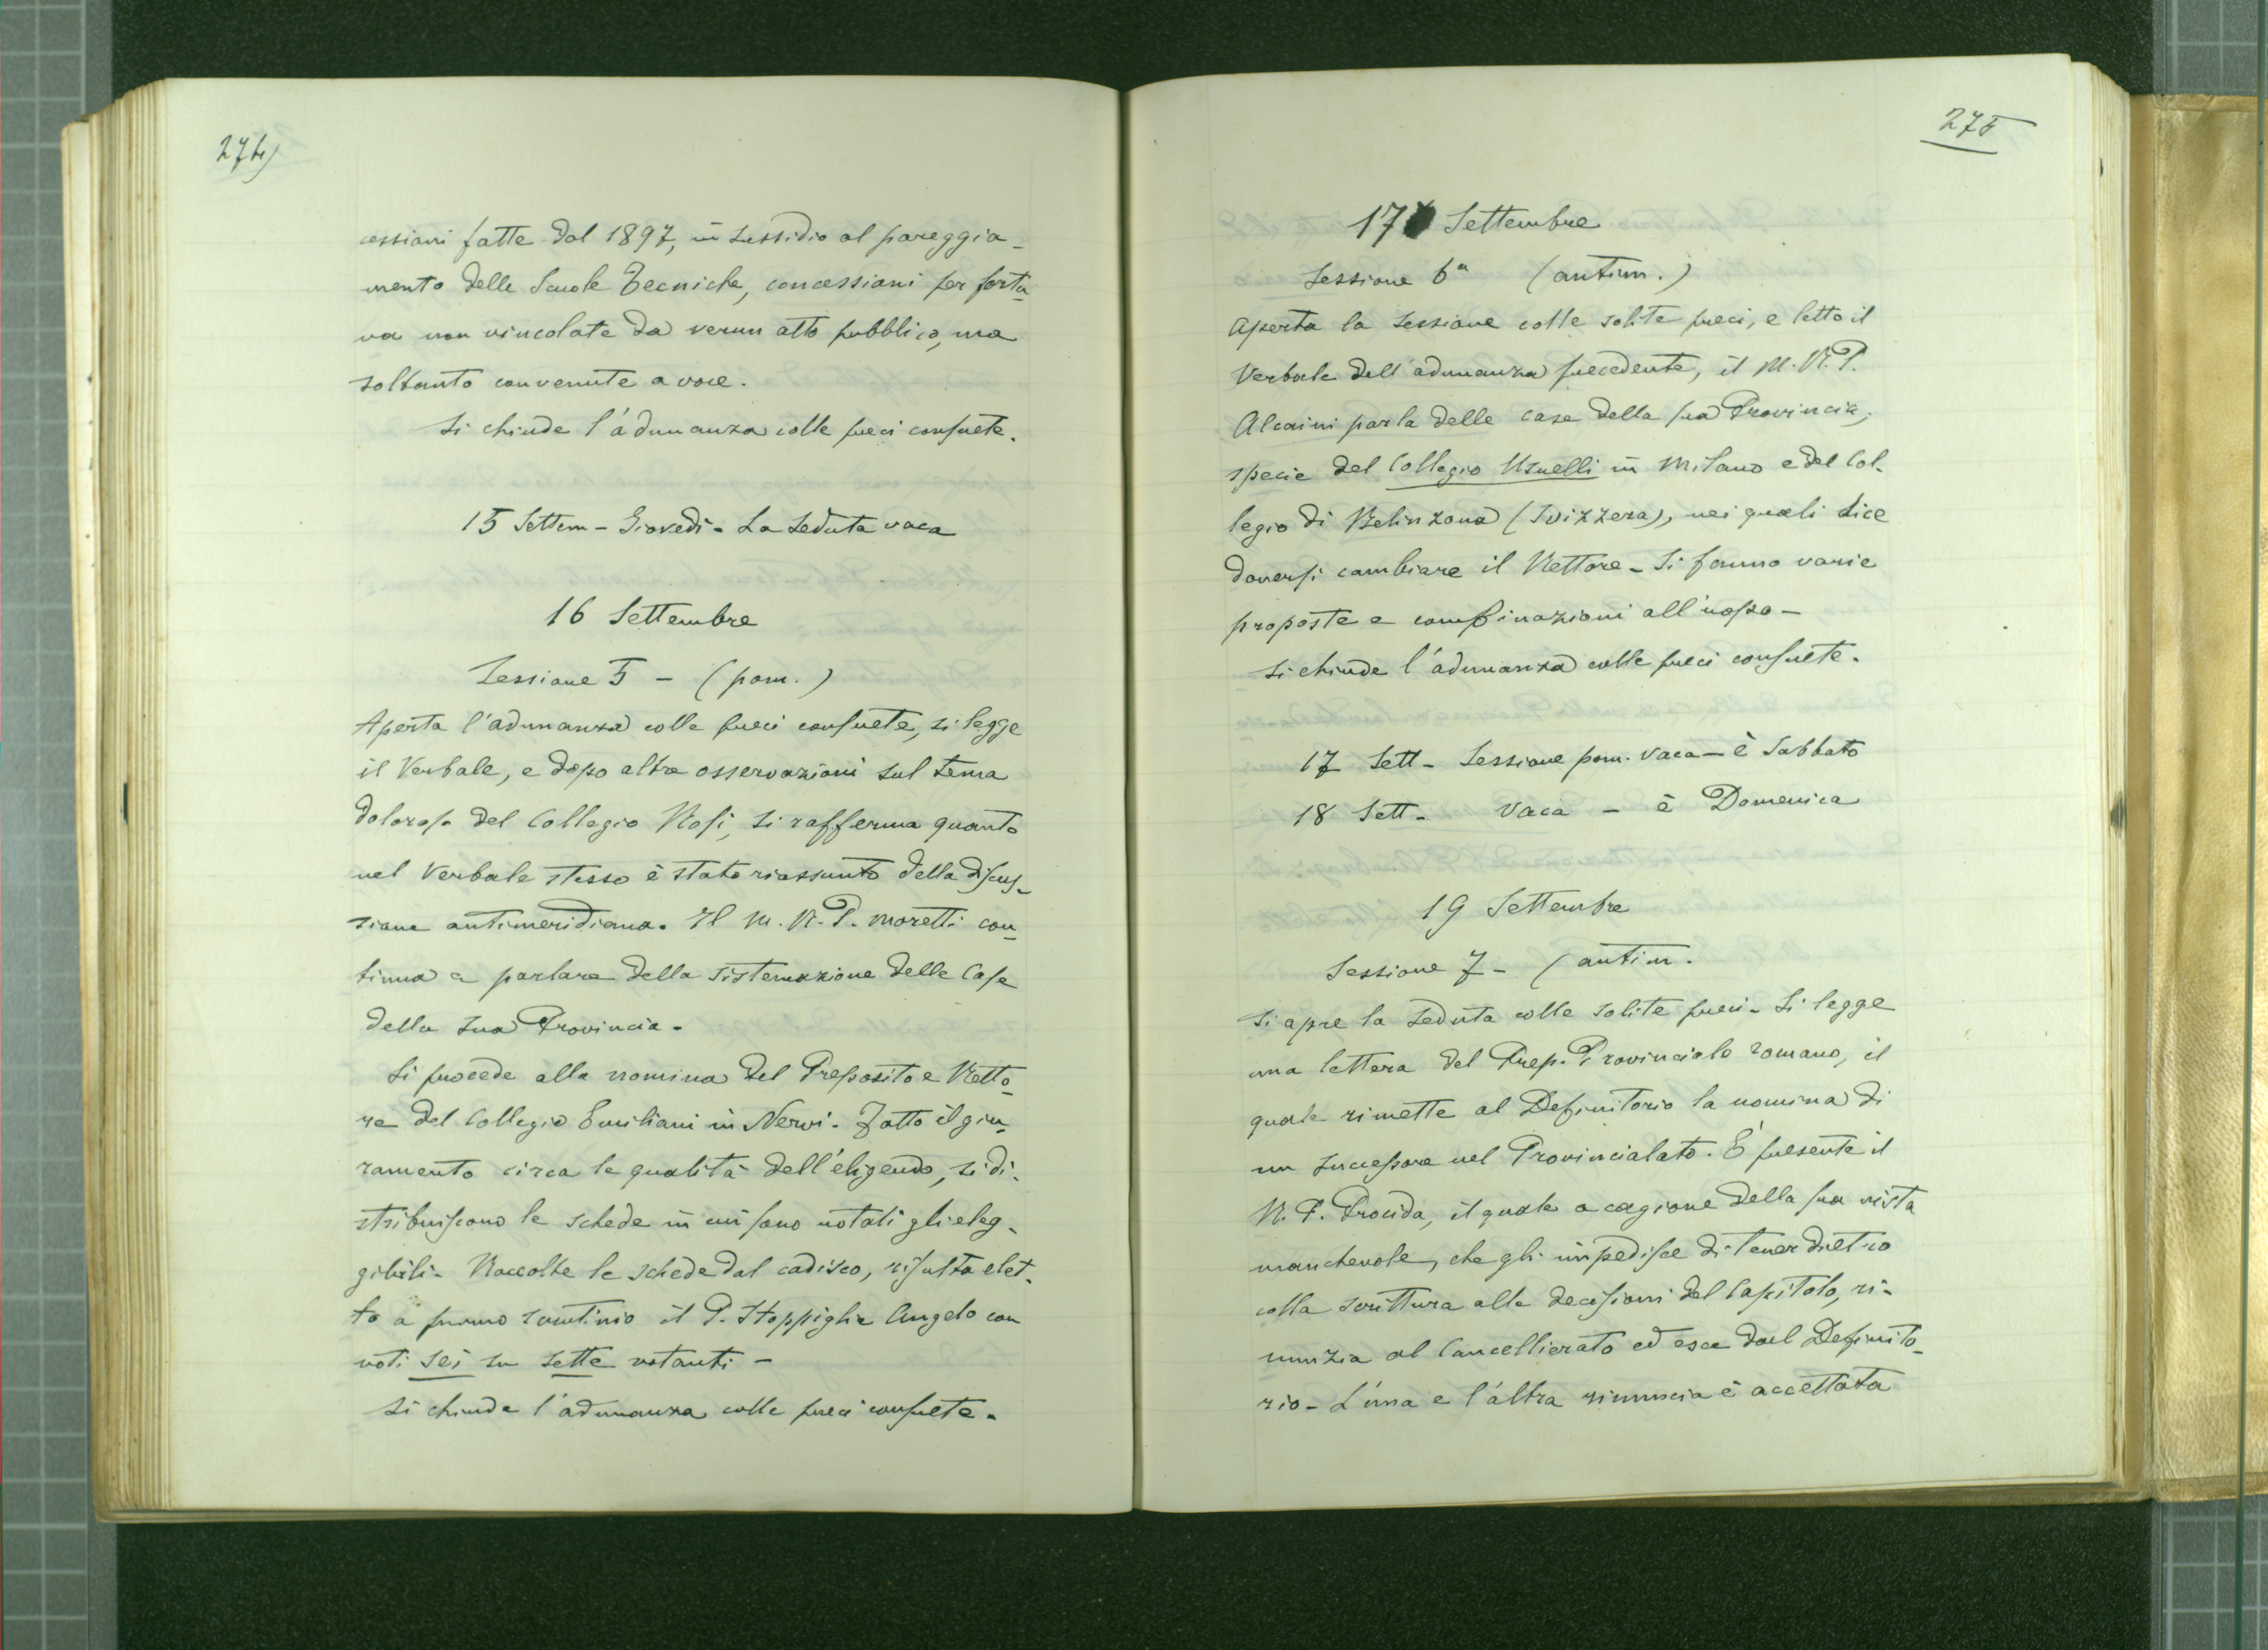 274)
cessioni fatte dal 1897, in sussidio al pareggia-
mento delle Scuole Tecniche, concessioni per fortu-
na non vincolate da verun atto pubblico, ma
soltanto convenute a voce.
Si chiude l'adunanza colle preci consuete.
15 Settem - Giovedì - La seduta vaca
16 Settembre
Sessione 5 - (pom.)
Aperta l'adunanza colle preci consuete, si legge
il Verbale, e dopo altre osservazioni sul tema
doloroso del Collegio Rosi, si rafferma quanto
nel Verbale stesso è stato riassunto della discus-
sione antimeridiana. Il M. R. P. Moretti con-
tinua a parlare della sistemazione delle Case
della sua Provincia.
Si procede alla nomina del Preposito e Retto-
re del Collegio Emiliani in Nervi. Fatto il giu-
ramento circa le qualità dell'eligendo, si di-
stribuiscono le schede in cui sono notati gli eleg-
gibili. Raccolte le schede dal cadisco, risulta elet-
to a primo scrutinio il P. Stoppiglia Angelo con
voti sei su sette votanti -
Si chiude l'adunanza colle preci consuete.
275
17 Settembre
Sessione 6a (antim.)
Aperta la sessione colle solite preci, e letto il
Verbale dell'adunanza precedente, il M. R. P.
Alcaini parla delle case della sua Provincia,
specie del Collegio Usuelli in Milano e del Col-
legio di Belinzona (Svizzera), nei quali dice
doversi cambiare il Rettore - Si fanno varie
proposte e combinazioni all'uopo -
Si chiude l'adunanza colle preci consuete.
17 Sett - Sessione pom. vaca - è Sabbato
18 Sett - Vaca - è Domenica
19 Settembre
Sessione 7 - (antim.
Si apre la seduta colle solite preci - Si legge
una lettera del Prep. Provinciale romano, il
quale rimette al Definitorio la nomina di
un successore nel Provincialato. È presente il
R. P. Procida, il quale a cagione della sua vista
manchevole, che gli impedisce di tener dietro
colla scrittura alle decisioni del Capitolo, ri-
nunzia al Cancellierato ed esce dal Definito-
rio - L'una e l'altra rinuncia è accettata